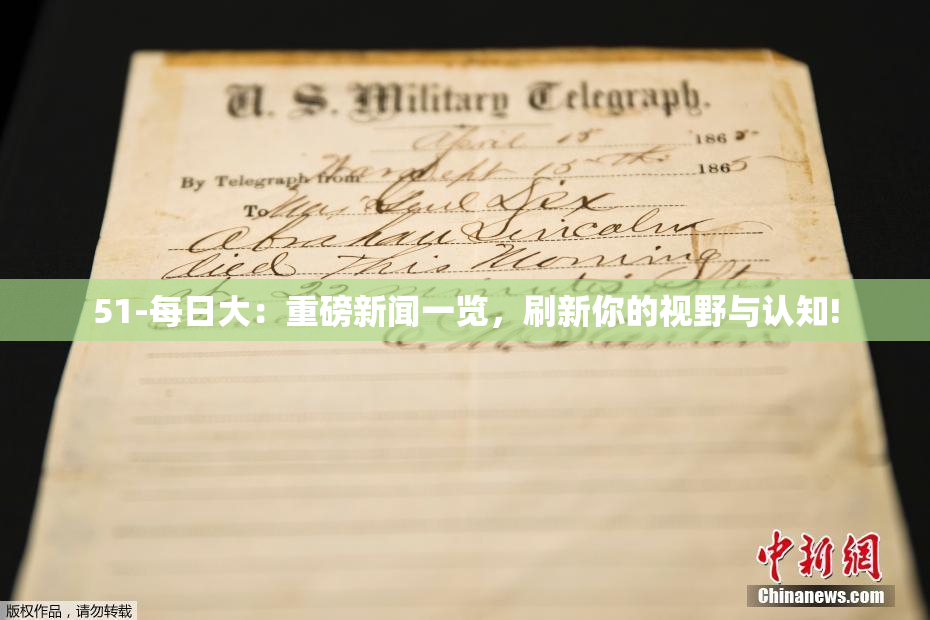 U. S. Military Telegraph.
April 15 1865
By Telegraph from War Dept 15th 1865
To Maj Genl Dix
Abraham Lincoln
died This Morning
at 22 minutes after
51-每日大：重磅新闻一览，刷新你的视野与认知!
E. M. Stanton
中新网
Chinanews.com
版权作品，请勿转载